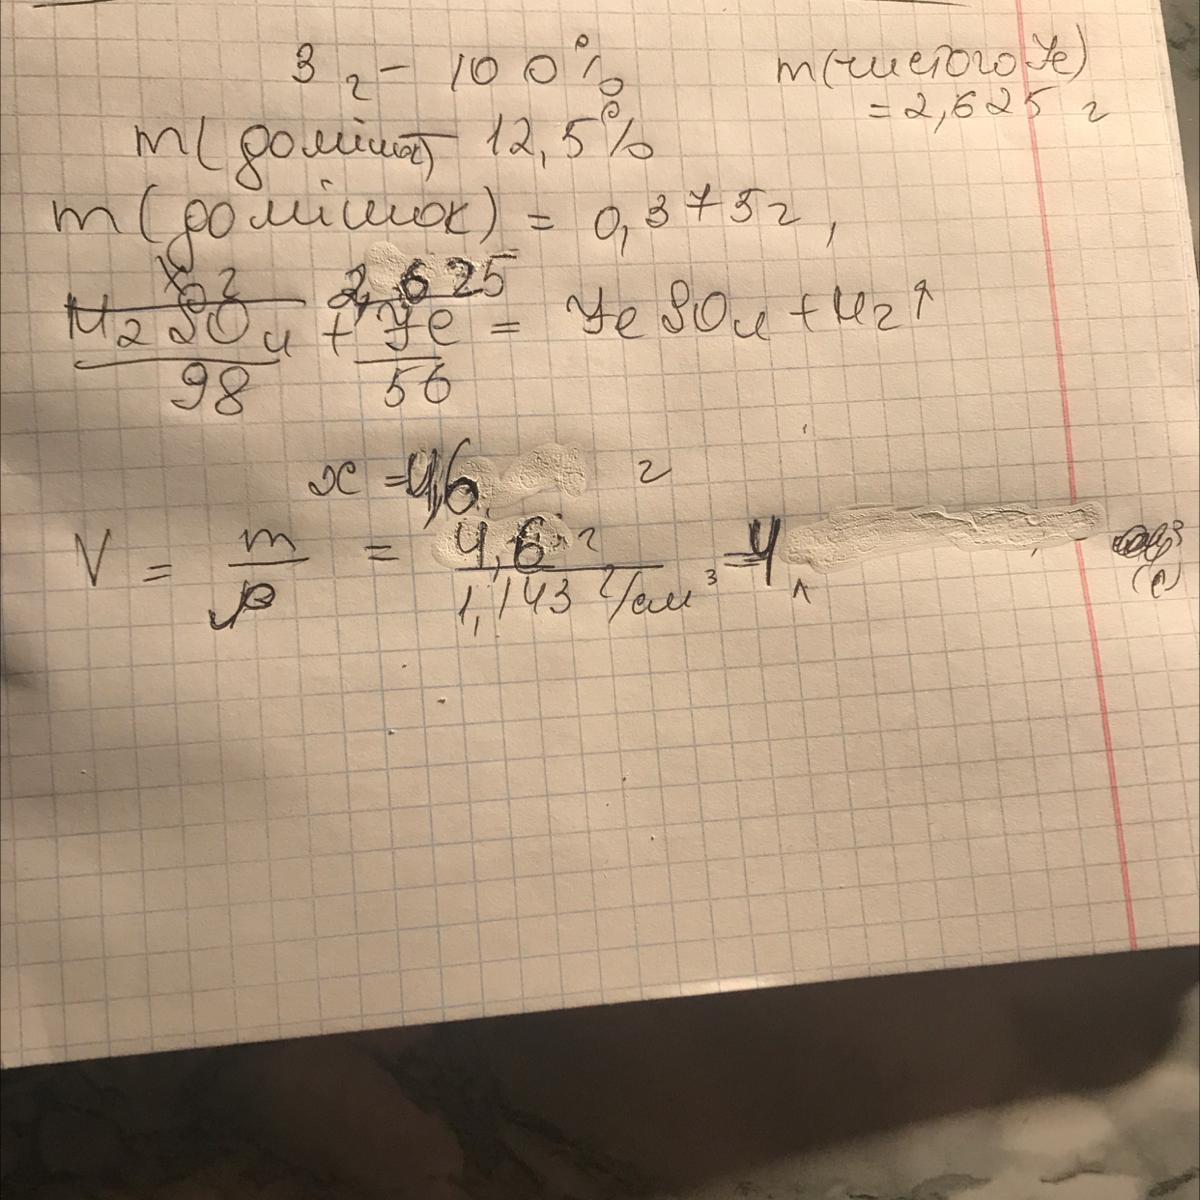 3 г - 100%
m(чистого Fe)
= 2,625 г
m(домішок) - 12,5%
m(домішок) = 0,375г,
x г 2,625
H2SO4 + Fe = FeSO4 + H2↑
98 56
x = 4,6 г
V = m/ρ = 4,6 г/1,143 г/см³ = 4